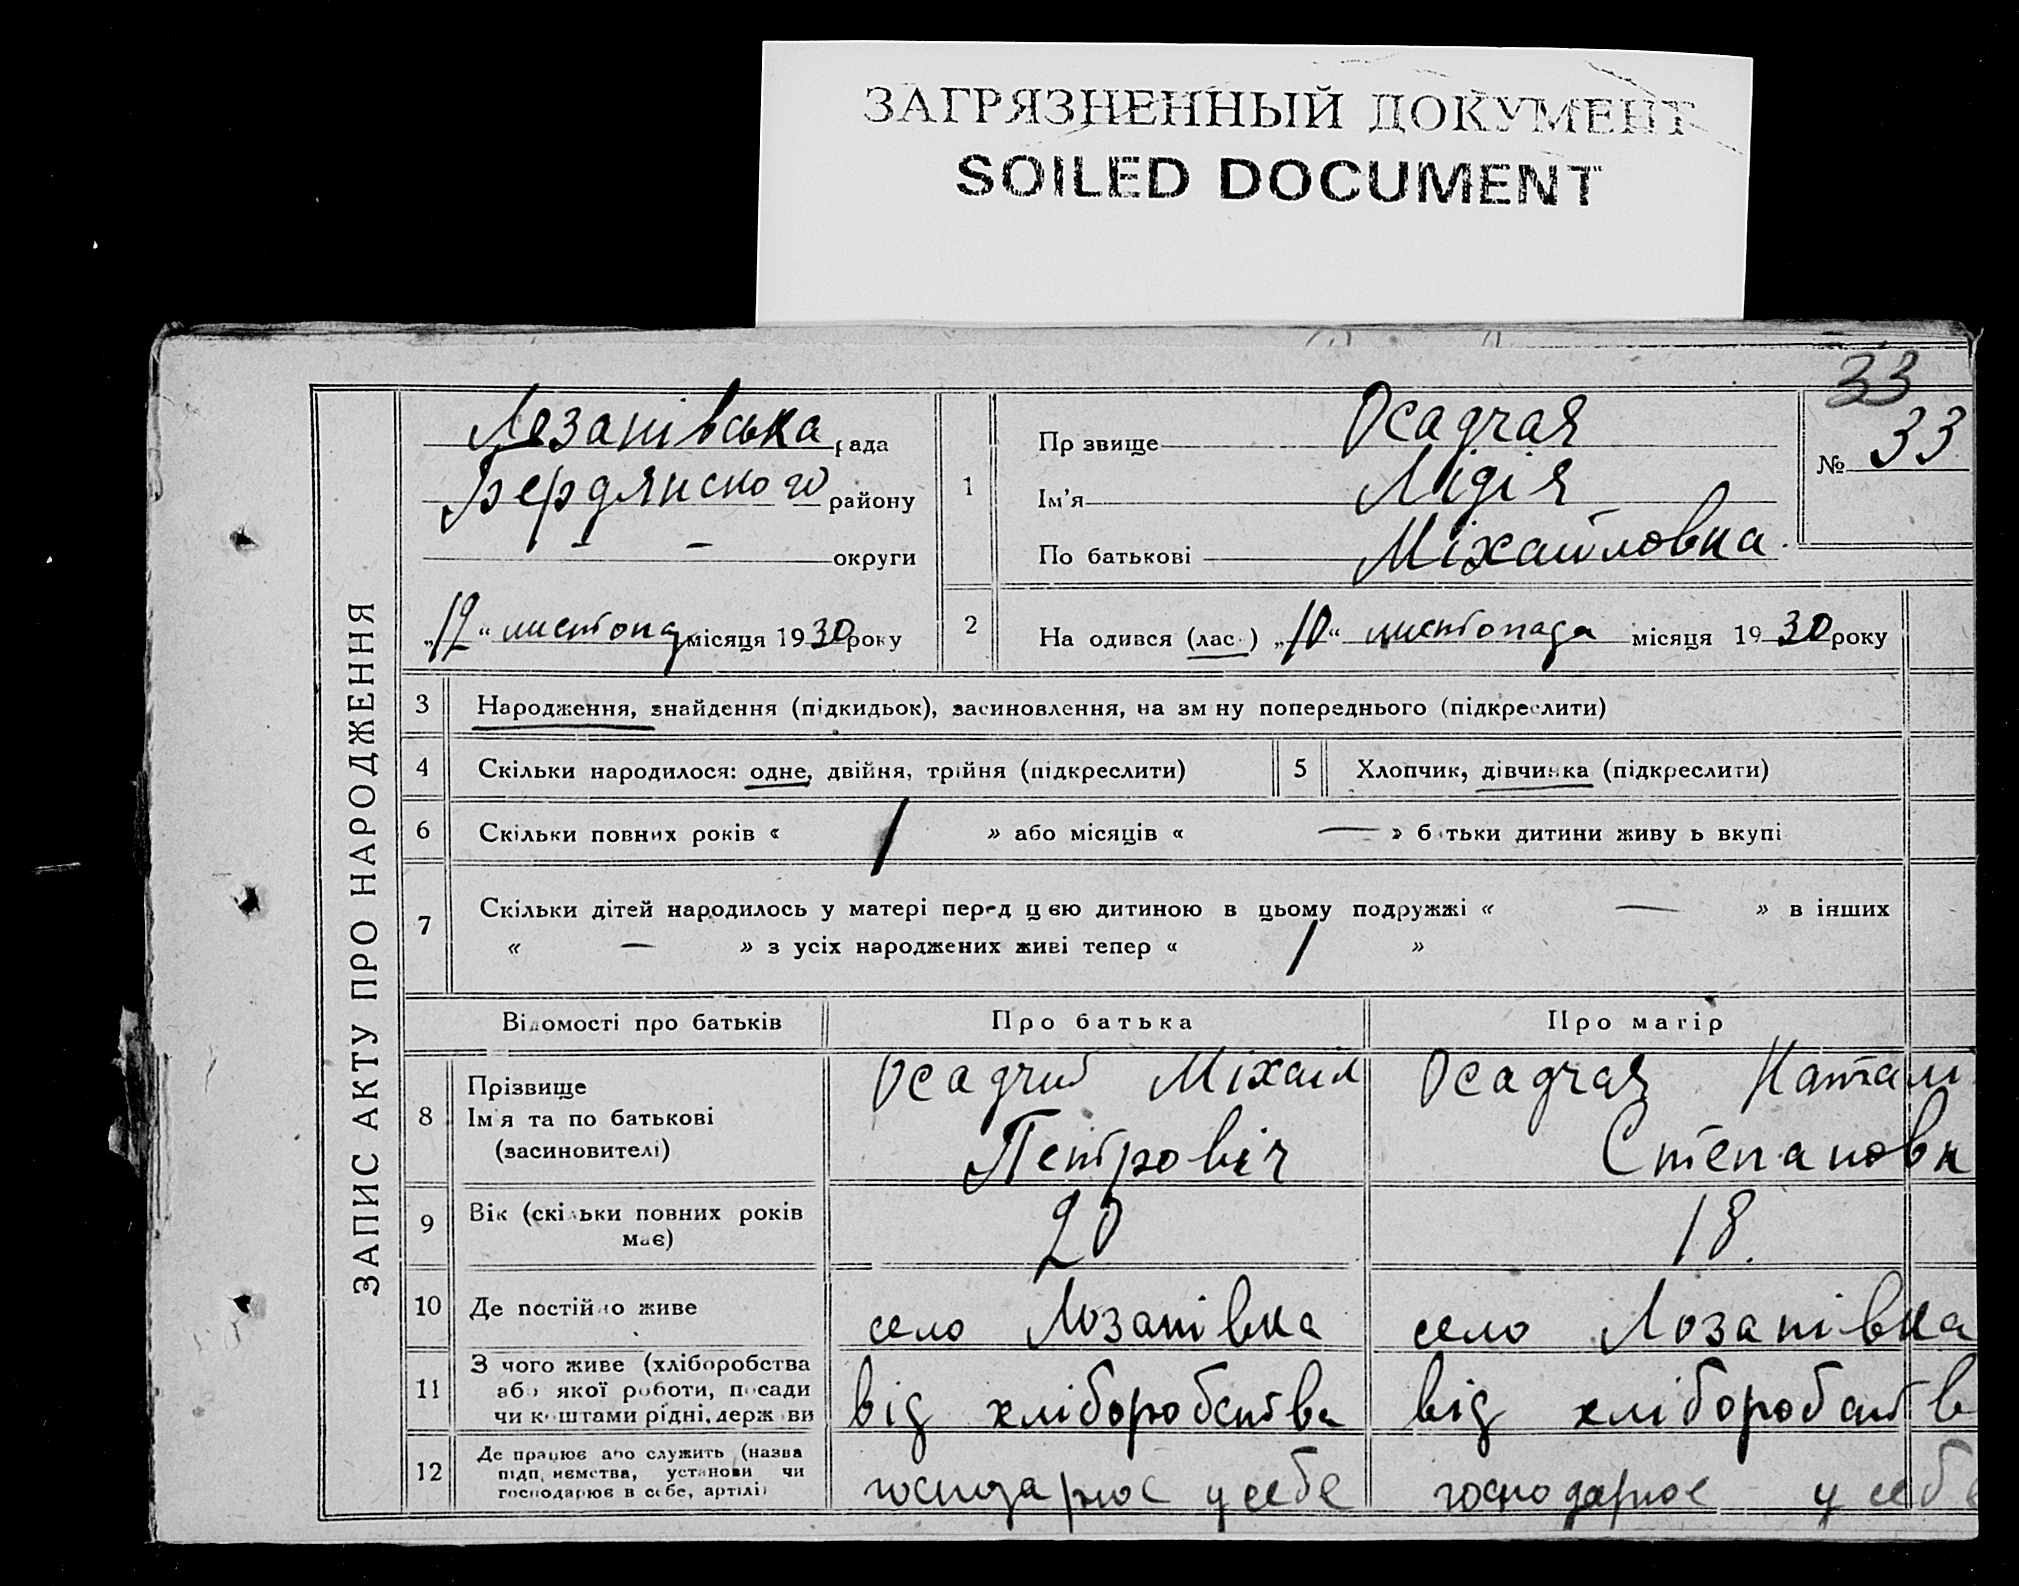 ЗАГРЯЗНЕННЫЙ ДОКУМЕНТ
SOILED DOCUMENT
33
ЗАПИС АКТУ ПРО НАРОДЖЕННЯ
Лозанівська рада
Бердянского району
— — округи
„12“ листопад місяця 1930 року
1
Пр звище Осадчая
Ім'я Лідія
По батькові Міхайловна.
№ 33
2
На одився (лас ) „10“ листопада місяця 1930 року
3 Народження, знайдення (підкидьок), засиновлення, на зм ну попереднього (підкреслити)
4 Скільки народилося: одне, двійня, трійня (підкреслити)
5 Хлопчик, дівчинка (підкреслити)
6 Скільки повних років « 1 » або місяців « — » б тьки дитини живу ь вкупі
7 Скільки дітей народилось у матері перед цією дитиною в цьому подружжі « — » в інших
« — » з усіх народжених живі тепер « 1 »
Відомості про батьків
Про батька
Про матір
8
Прізвище
Ім'я та по батькові
(засиновителі)
Осадчий Міхаил
Петровіч
Осадчая Натали
Степановн
9
Вік (скільки повних років
має)
20
18.
10 Де постійно живе
село Лозанівка
село Лозанівка
11
З чого живе (хліборобства
або якої роботи, посади
чи коштами рідні, держ ви
від хліборобства
від хліборобств
12
Де працює або служить (назва
підп иємства, установи чи
господарює в себе, артілі)
господарює у себе
господарює у себе